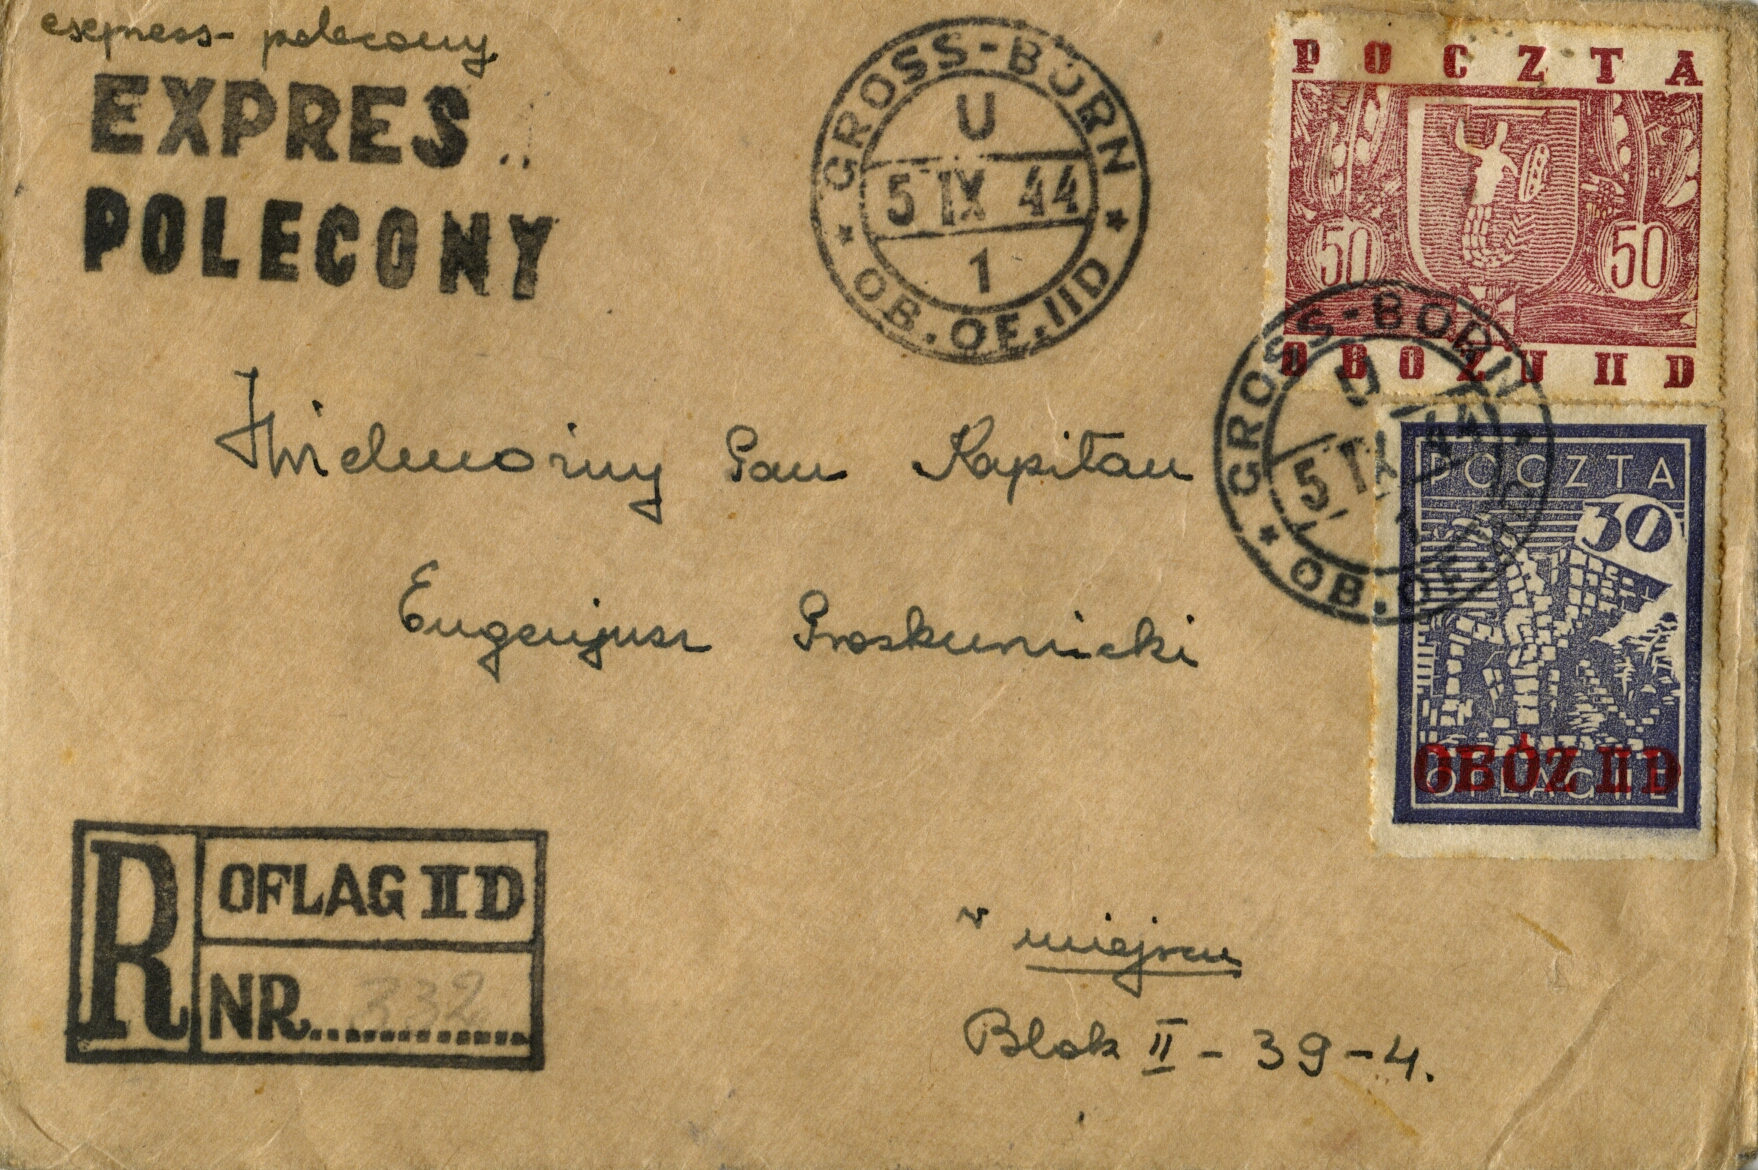 express- polecony
EXPRES
POLECONY
GROSS-BORN
U
5 IX 44
1
OB.OF.IID
POCZTA
50 50
OBOZU II D
GROSS-BORN
U
5 IX 44
1
OB.OF.
POCZTA
30
OBÓZ II D
OFLAG II D
Wielmożny Pan Kapitan
Eugenjusz
R
OFLAG II D
NR. 332
w miejscu
Blok II - 39-4.